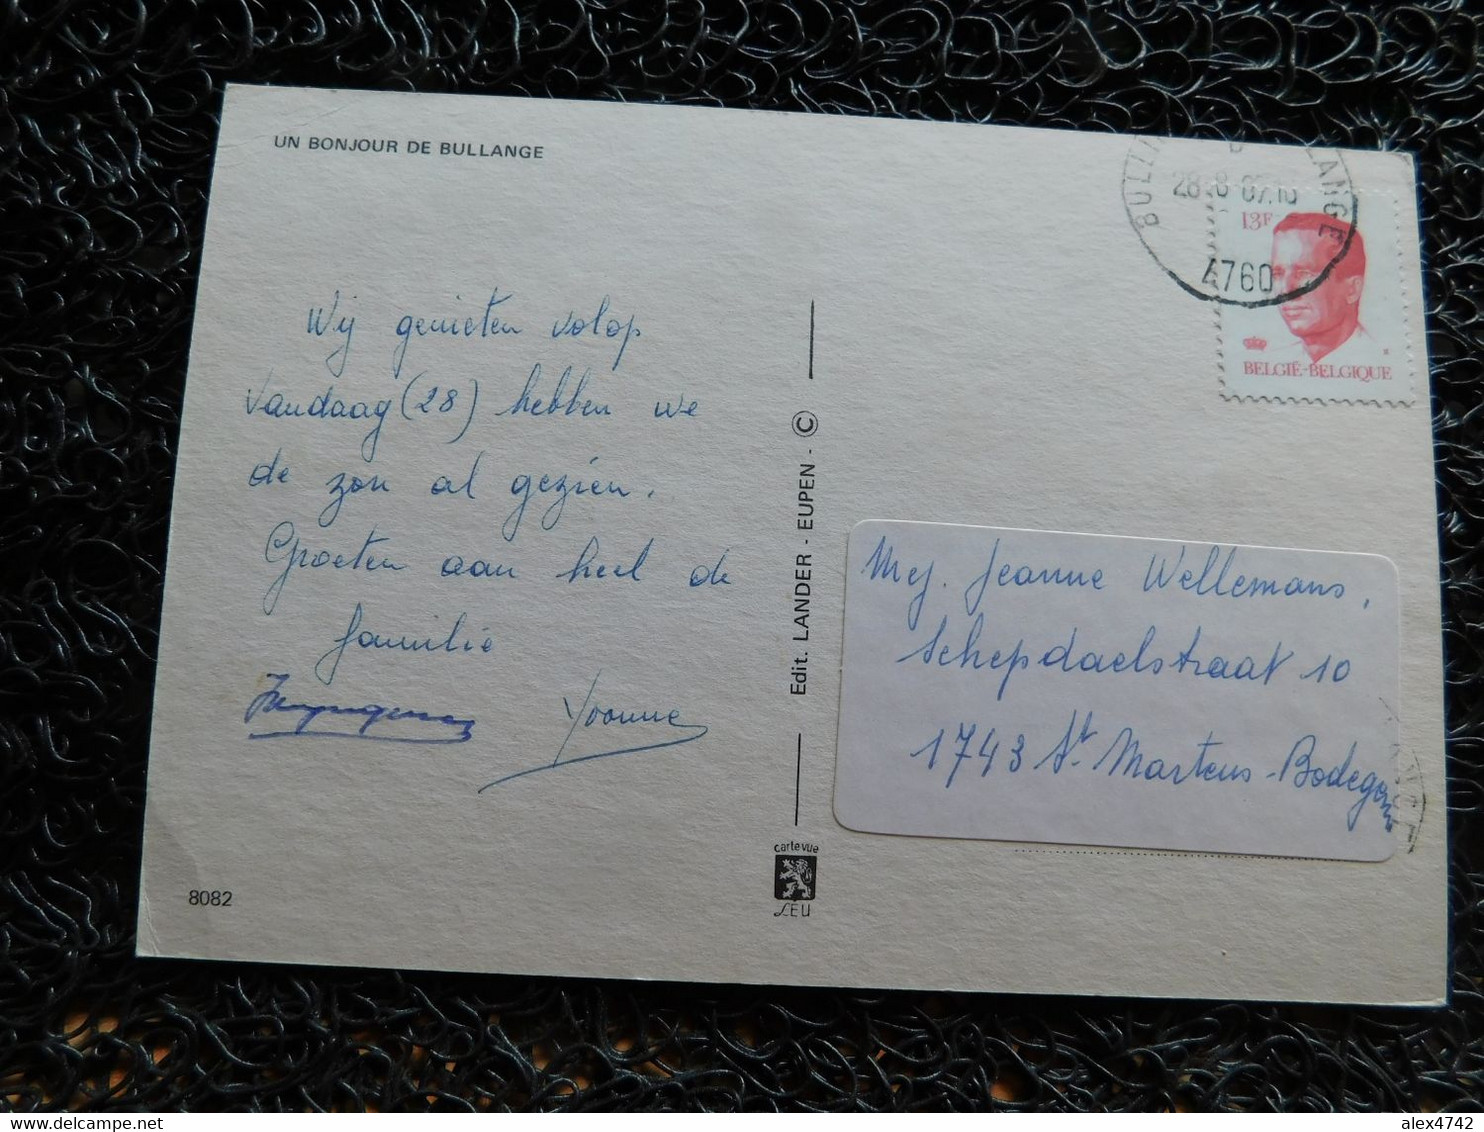 UN BONJOUR DE BULLANGE
Wij genieten volop
Vandaag (28) hebben we
de zon al gezien.
Groeten aan heel de
familie
Yvonne
8082
Edit. LANDER - EUPEN - ©
cartevue
LEU
28-8-87
4760
13F
BELGIË-BELGIQUE
Mej. Jeanne Wellemans,
Schepdaelstraat 10
1743 St Martens-Bodegem
alex4742